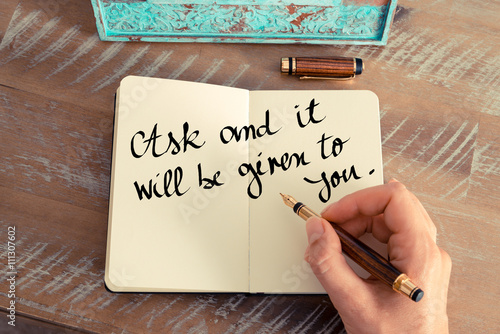 Ask and it
will be given to
you.
Adobe Stock | #111307602